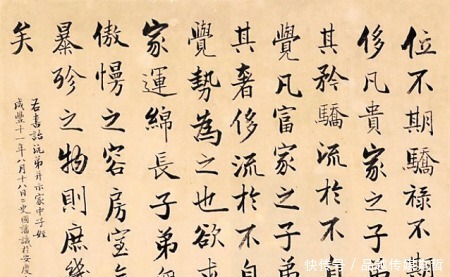 位不期驕祿不
侈凡貴家之子
其矜驕流於不
覺凡富家之子弟
其奢侈流於不自
覺勢為之也欲求
家運綿長子弟
傲慢之容房室
暴殄之物則庶幾
矣
右書詒沅弟并示家中子姪
咸豐十一年八月十八日國藩識於安慶
快传号 /